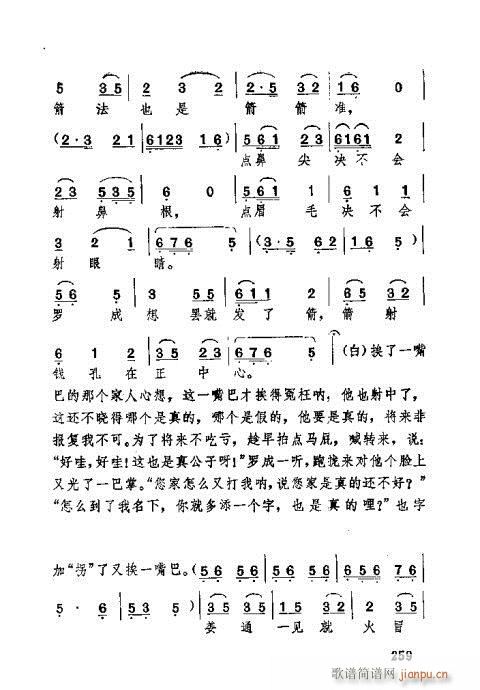 5 3 5 | 2 3 2 | 2·5 3 2 | 1 6 0 |
箭 法 也 是 箭 箭 准,
(2·3 2 1 | 6123 1 6) | 5 6 1 2 3 | 6161 2 |
点鼻 尖 决 不 会
2 3 5 3 5 | 6 0 | 5 6 1 1 | 6 1 1 |
射 鼻 根, 点眉 毛 决 不 会
3 2 1 | 6 7 6 5 | (3·5 6 2 | 1 6 5) |
射 眼 瞎。
5 6 5 | 3 5 5 | 6 1 1 2 | 5 3 2 |
罗 成 想 罢就 发 了 箭, 箭 射
6 1 2 | 3 5 2 3 | 6 7 6 5 | (白)挨了一嘴
钱 孔 在 正 中 心。
巴的那个家人心想,这一嘴巴才挨得冤枉呐,他也射中了,
这还不晓得哪个是真的,哪个是假的,他要是真的,将来非
报复我不可。为了将来不吃亏,趁早拍点马屁,喊转来,说:
“好哇,好哇!这也是真公子呀!”罗成一听,跑拢来对他个脸上
又光了一巴掌。“您家怎么又打我呐,说您家是真的还不好?”
“怎么到了我名下,你就多添一个字,也是真的哩?”也字
加“拐”了又挨一嘴巴。(5 6 5 6 | 5 6 5 6 | 6 5 6 7 6 |
5· 6 | 5 3 5) | 3 5 5 | 3 5 5 | 2 3 2 |
姜 通 一见 就 火 冒
259
歌谱简谱网
jianpu.cn